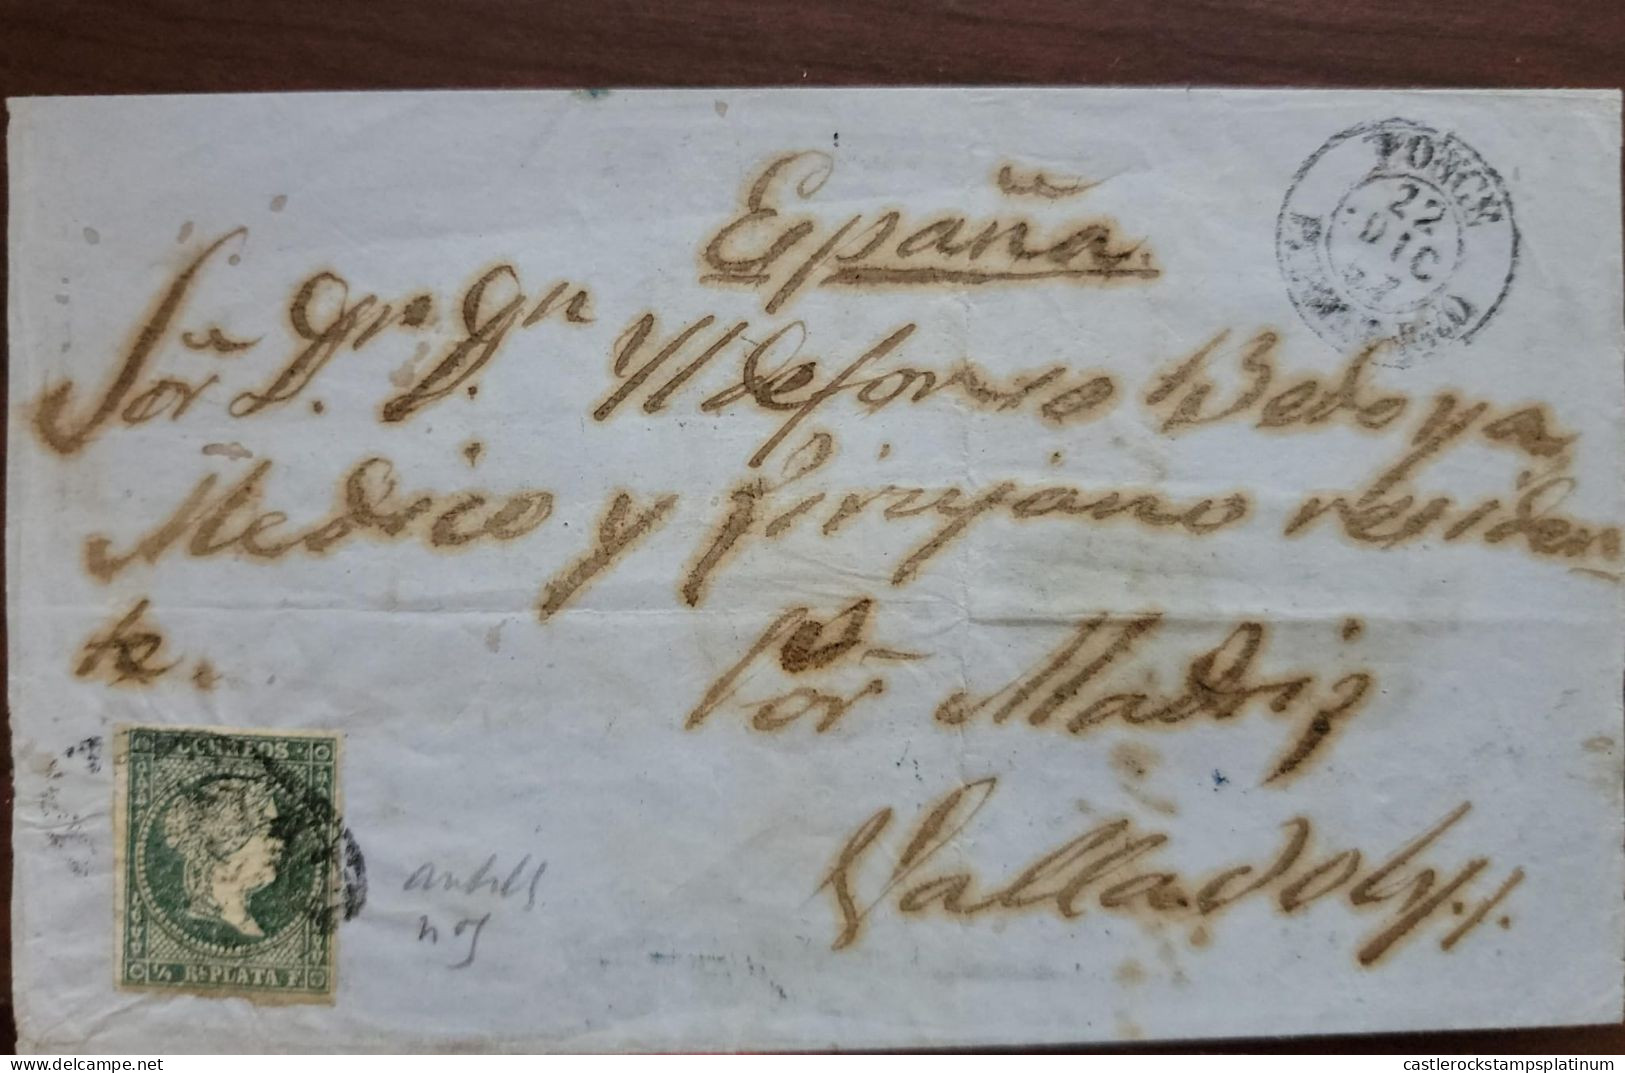 España.
PONCE
22
DIC
Sor. D. D. Yldefonso Bedoya
Medico y Cirujano residen
te.
Por Madriz
Valladoly
CORREOS
¼ Rl PLATA F.
delcampe.net
castlerockstampsplatinum